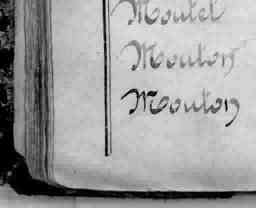 Moutel
Mouton
Mouton